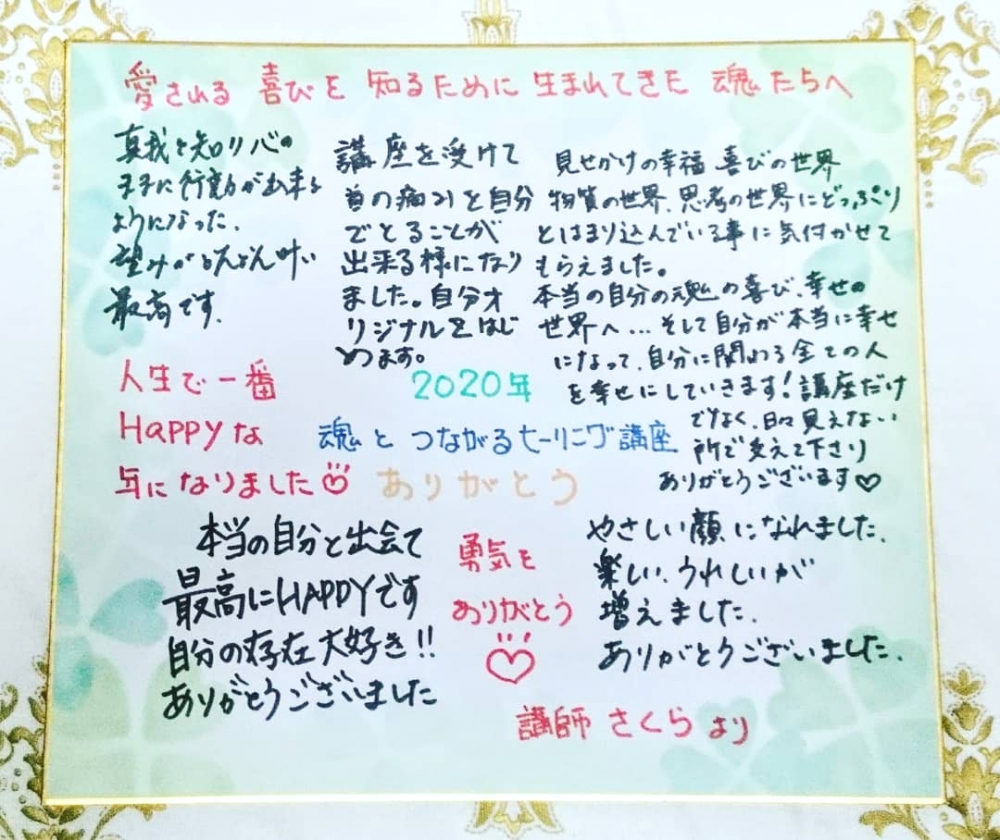 愛される 喜びを 知るために 生まれてきた 魂たちへ
真我を知り心の
ままに行動が出来る
ようになった.
望みがどんどん叶い
最高です.
講座を受けて
首の痛みを自分
でとることが
出来る様になり
ました。自分オ
リジナルをはじ
めます。
見せかけの幸福 喜びの世界
物質の世界、思考の世界にどっぷり
とはまり込んでいる事に気付かせて
もらえました。
本当の自分の魂の喜び、幸せの
世界へ... そして自分が本当に幸せ
になって、自分に関わる全ての人
を幸せにしていきます!講座だけ
でなく、日々見えない
所で支えて下さり
ありがとうございます♡
人生で一番
Happyな
年になりました
2020年
魂と つながるヒーリング講座
ありがとう
本当の自分と出会て
最高にHAPPYです
自分の存在大好き!!
ありがとうございました
勇気を
ありがとう
♡
やさしい顔になれました.
楽しい、うれしいが
増えました.
ありがとうございました.
講師 さくら より